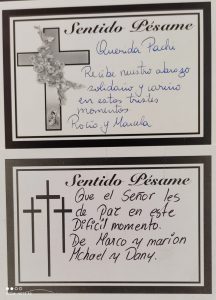 Sentido Pésame
Querida Pachi
Recibe nuestro abrazo
solidario y cariño
en estos tristes
momentos
Rocío y Marcela
Sentido Pésame
Que el Señor les
de paz en este
Difícil momento.
De Marco y marion
Mchael y Dany.